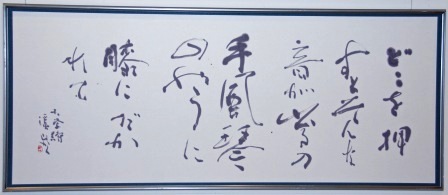 どこを押
すとそんな
音が
手風琴
のやうに
膝にだか
れて